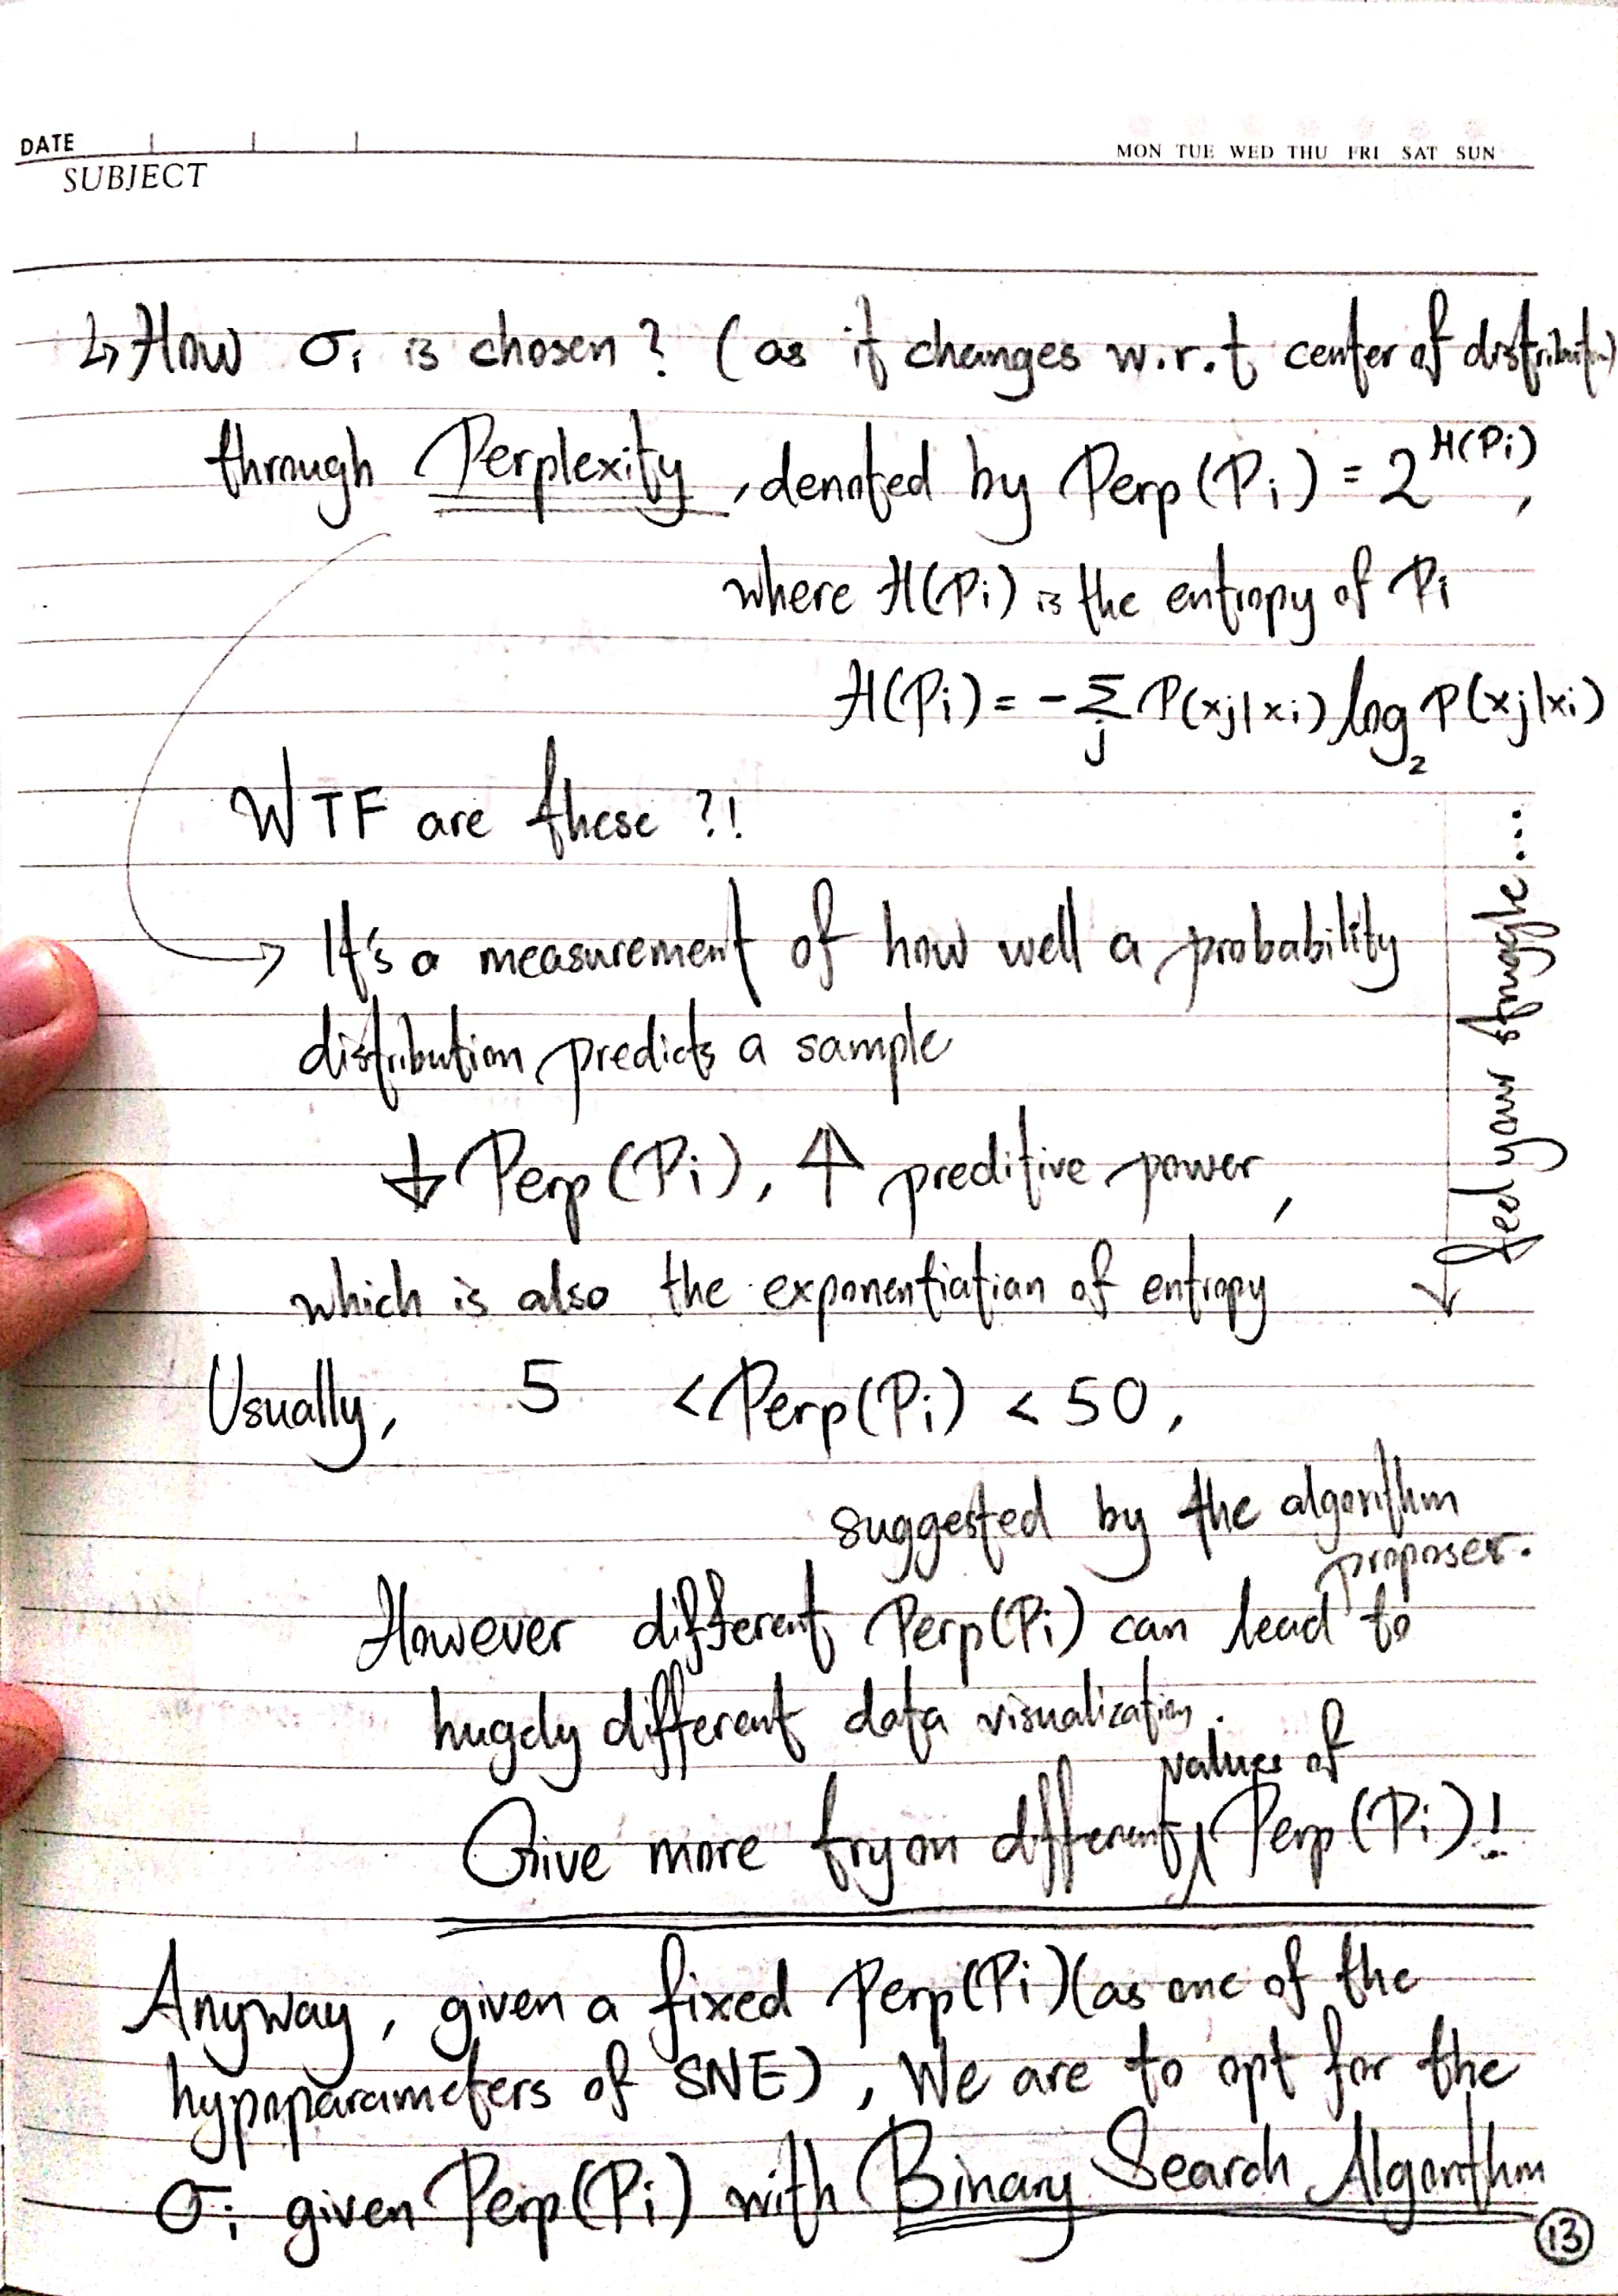 DATE
MON TUE WED THU FRI SAT SUN
SUBJECT
↳ How σi is chosen? (as it changes w.r.t center of distribution)
through Perplexity, denoted by Perp(Pi) = 2^H(Pi),
where H(Pi) is the entropy of Pi
H(Pi) = -Σj P(xj|xi) log2 P(xj|xi)
WTF are these ?!
→ It's a measurement of how well a probability
distribution predicts a sample
↓ Perp(Pi), ↑ preditive power,
which is also the exponentiation of entropy
feed your struggle...
Usually, 5 < Perp(Pi) < 50,
suggested by the algorithm
proposer.
However different Perp(Pi) can lead to
hugely different data visualization.
Give more try on different values of Perp(Pi)!
Anyway, given a fixed Perp(Pi) (as one of the
hypoparameters of SNE), We are to opt for the
σi given Perp(Pi) with Binary Search Algorithm
13